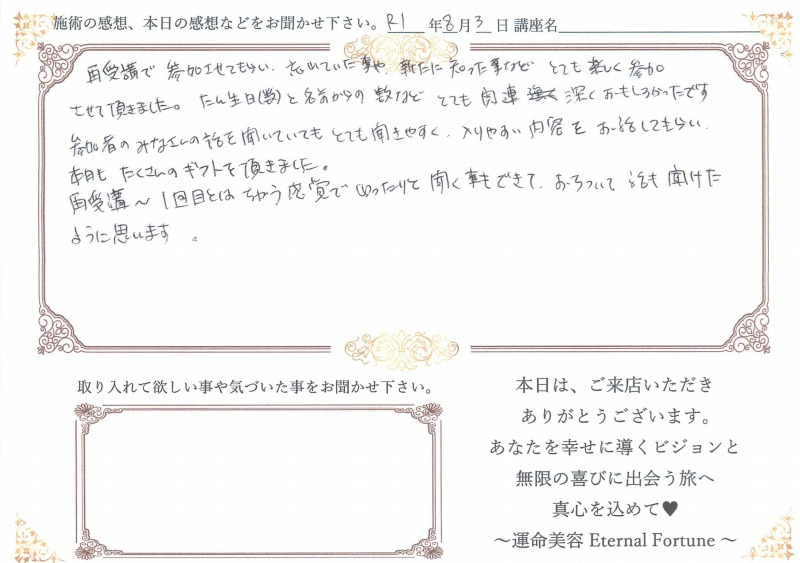 施術の感想、本日の感想などをお聞かせ下さい。 R1 年 8 月 3 日 講座名
再受講で 参加させてもらい、忘れていた事や、新たに知った事など とても楽しく 参加
させて頂きました。 たん生日(数)と名前からの 数など とても 関連 深く おもしろかったです
参加者のみなさんの話を聞いていても とても聞きやすく、入りやすい 内容を お話してもらい、
本日も たくさんのギフトを頂きました。
再受講〜 1回目とは ちがう感覚で ゆったりと 聞く事もできて、おちついて 話も 聞けた
ように思います 。
取り入れて欲しい事や気づいた事をお聞かせ下さい。
本日は、ご来店いただき
ありがとうございます。
あなたを幸せに導くビジョンと
無限の喜びに出会う旅へ
真心を込めて♥
〜運命美容 Eternal Fortune 〜